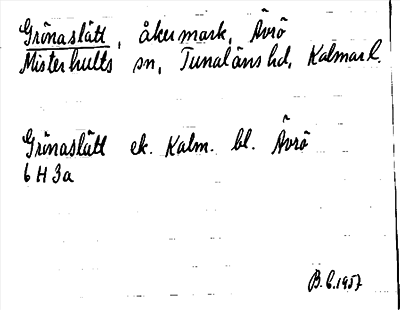 Grönaslätt, åkermark, Ävrö
Misterhults sn, Tunaläns hd, Kalmar l.
Grönaslätt ek. Kalm. bl. Ävrö
6 H 3a
B.C. 1957